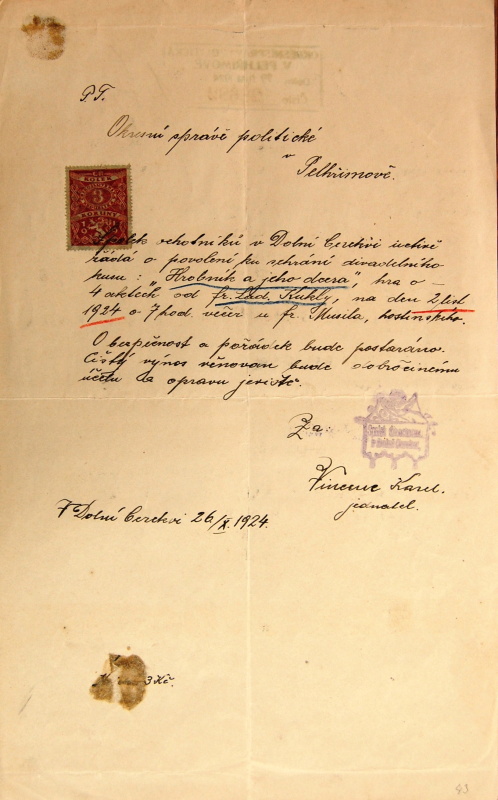 P.T.
Okresní správě politické
v Pelhřimově.
KOLEK
3
KORUNY
Spolek ochotníků v Dolní Cerekvi uctivě
žádá o povolení ku sehrání divadelního
kusu: "Hrobník a jeho dcera", hra o
4 aktech od fr. Lad. Kukly, na den 2 list
1924 o 7 hod. večer u fr. Musila, hostinského.
O bezpečnost a pořádek bude postaráno.
Čistý výnos věnován bude dobročinému
účelu na opravu jeviště.
Za:
Vincenc Karel.
jednatel.
V Dolní Cerekvi 26/X. 1924.
3 Kč.